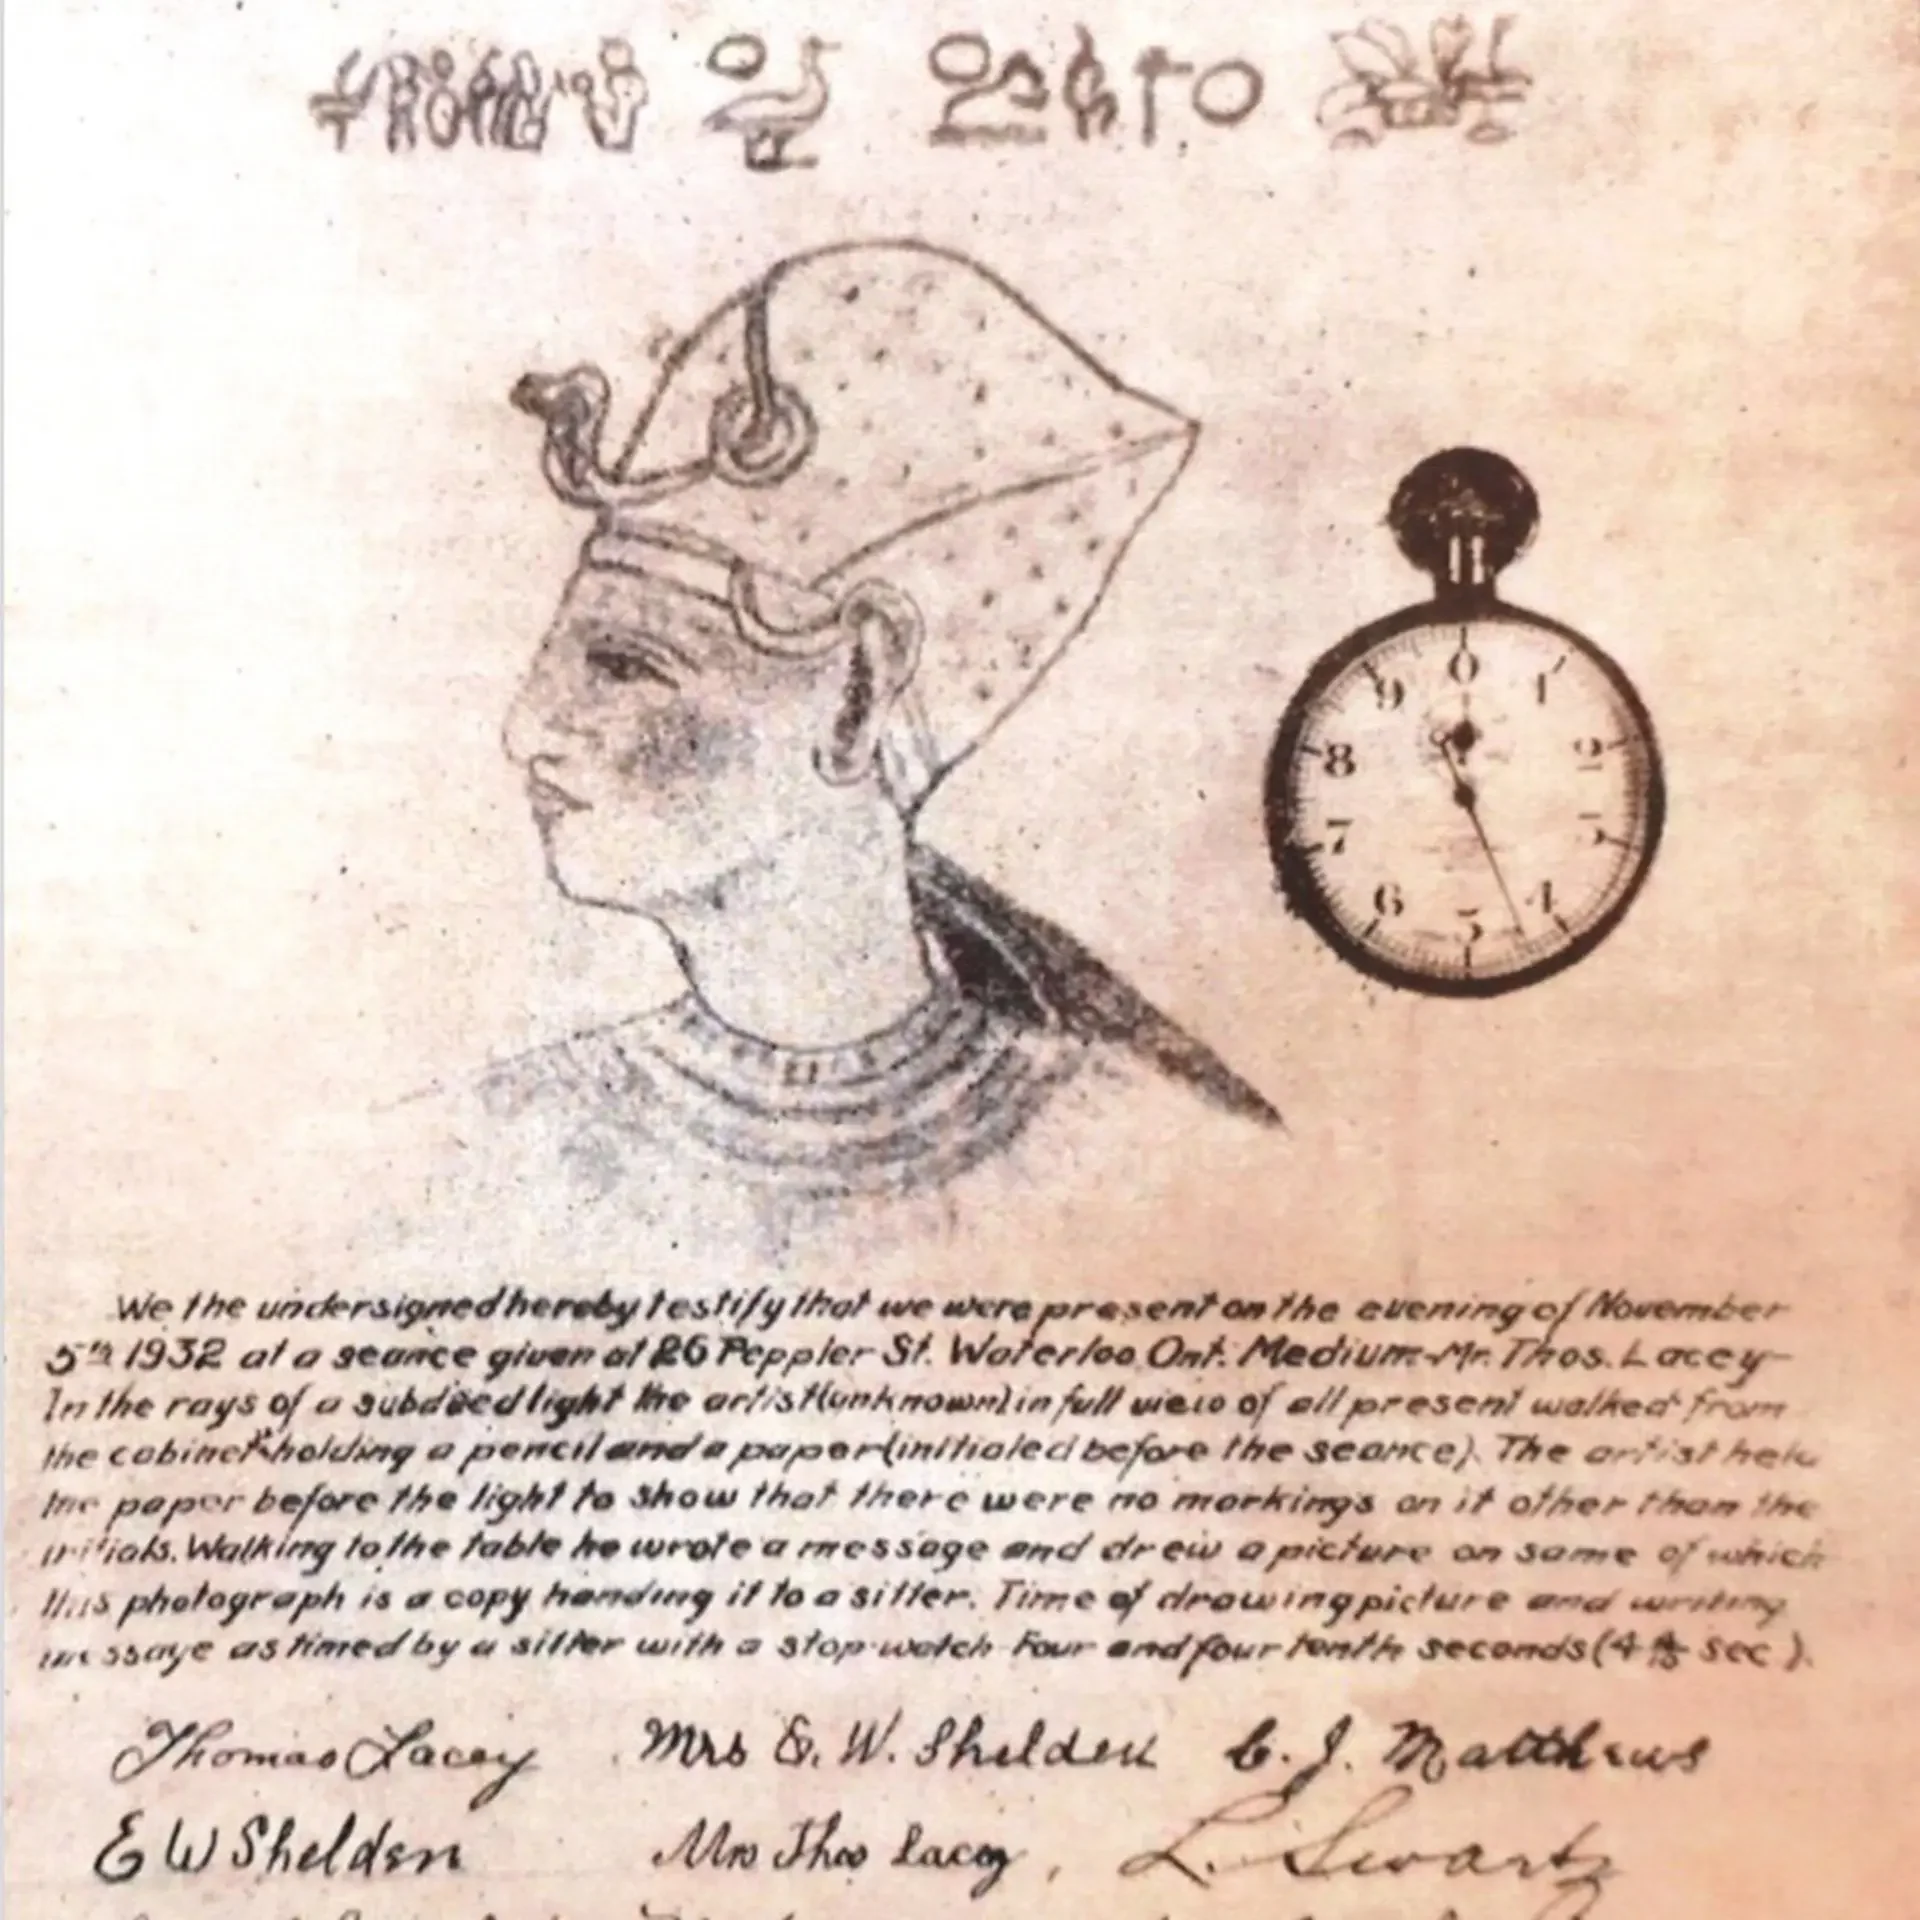 0
9 1
8 2
7
6 5 4
We the undersigned hereby testify that we were present on the evening of November
5th 1932 at a seance given at 26 Peppler St. Waterloo Ont. Medium-Mr. Thos. Lacey-
In the rays of a subdued light the artist (unknown) in full view of all present walked from
the cabinet holding a pencil and a paper (initialed before the seance). The artist held
the paper before the light to show that there were no markings on it other than the
initials. Walking to the table he wrote a message and drew a picture on same of which
this photograph is a copy handing it to a sitter. Time of drawing picture and writing
message as timed by a sitter with a stop-watch Four and four tenth seconds (4 4/10 sec).
Thomas Lacey Mrs E. W. Shelden C. J. Matthews
E W Shelden Mrs Thos Lacey, L. Swartz